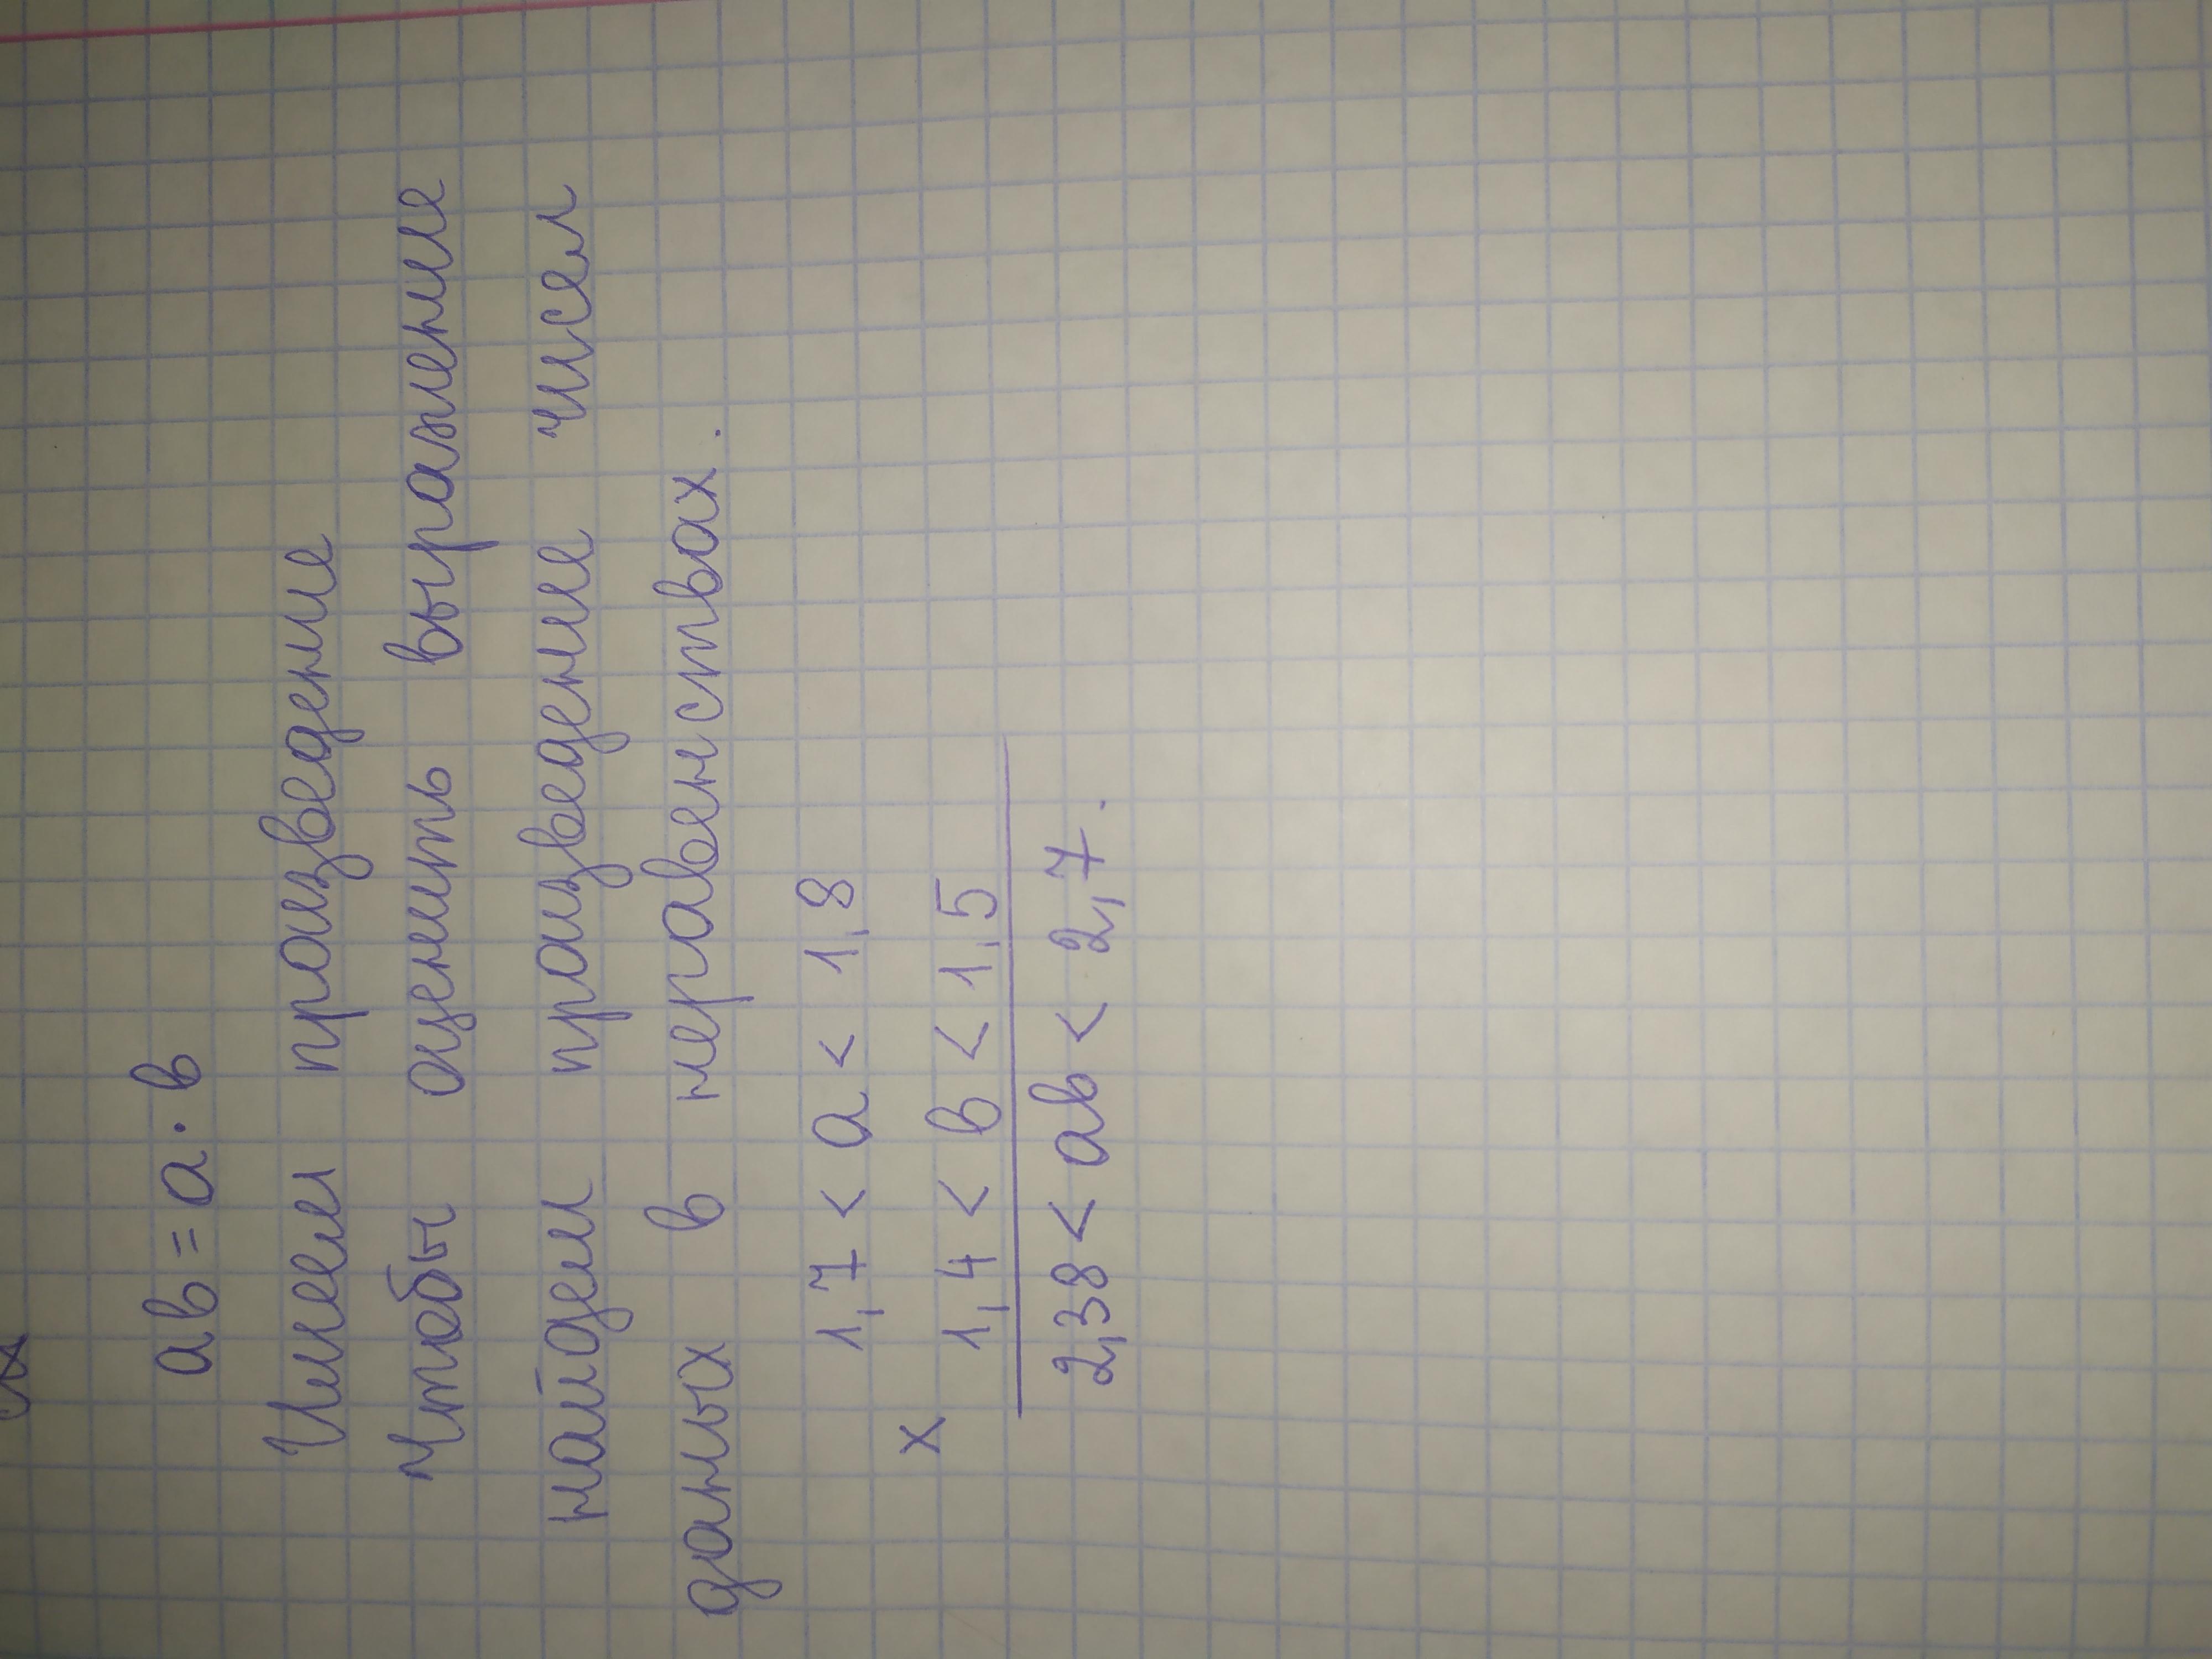 ав = а · в
Имеем произведение
Чтобы оценить выражение
найдем произведение чисел
даных в неравенствах.
1,7 < а < 1,8
×
1,4 < в < 1,5
2,38 < ав < 2,7.